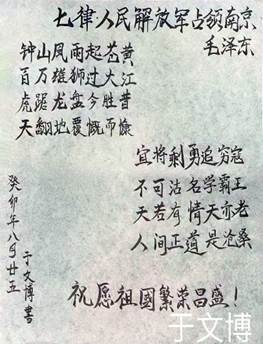 七律人民解放军占领南京
毛泽东
钟山凤雨起苍黄
百万雄狮过大江
虎踞龙盘今胜昔
天翻地覆慨而慷
宜将剩勇追穷寇
不可沽名学霸王
天若有情天亦老
人间正道是沧桑
癸卯年八月廿五
于文博书
祝愿祖國繁荣昌盛！
于文博